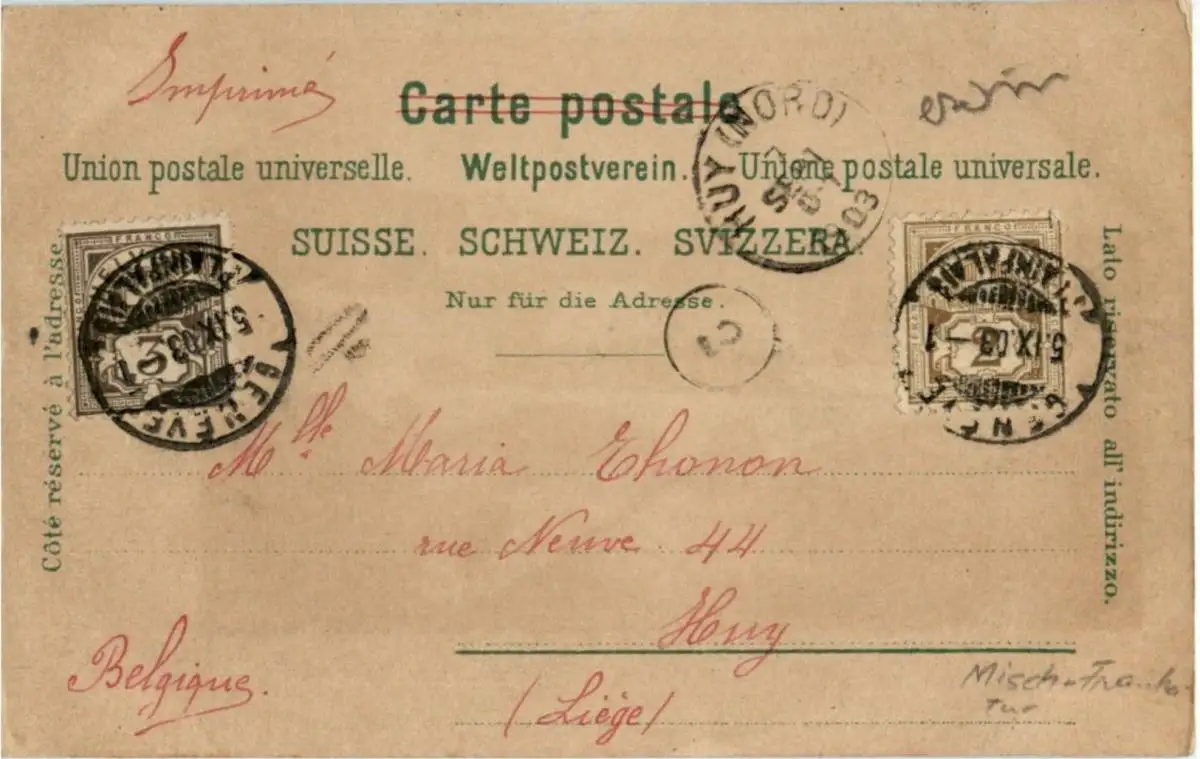 Imprimé
Carte postale
Union postale universelle. Weltpostverein. Unione postale universale.
SUISSE. SCHWEIZ. SVIZZERA.
Nur für die Adresse.
Côté réservé à l'adresse.
Lato riservato all' indirizzo.
HUY (NORD)
1903
FRANCO
3
GENÈVE
PLAINPALAIS
5.IX.03
FRANCO
2
GENÈVE
PLAINPALAIS
5.IX.03-1
Mlle Maria Thonon
rue Neuve 44
Huy
(Liége)
Belgique.
Misch-Franka-
tur